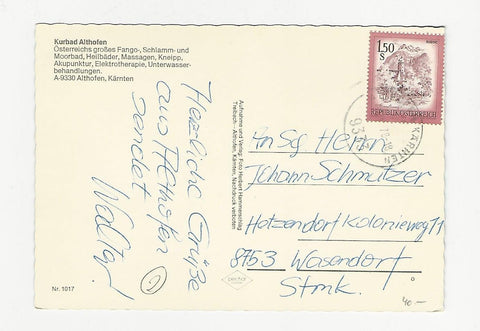 Kurbad Althofen
Österreichs großes Fango-, Schlamm- und
Moorbad, Heilbäder, Massagen, Kneipp,
Akupunktur, Elektrotherapie, Unterwasser-
behandlungen.
A-9330 Althofen, Kärnten
Herzliche Grüße
aus Althofen
sendet
Walter
Nr. 1017
Aufnahme und Verlag: Foto Herbert Hammerschlag
Treibach - Althofen, Kärnten, Nachdruck verboten
1.50
S
REPUBLIK ÖSTERREICH
KÄRNTEN
An Sg Herrn
Johann Schmutzer
Hetzendorf Kolonieweg 11
8753 Wasendorf
Stmk.
40.-